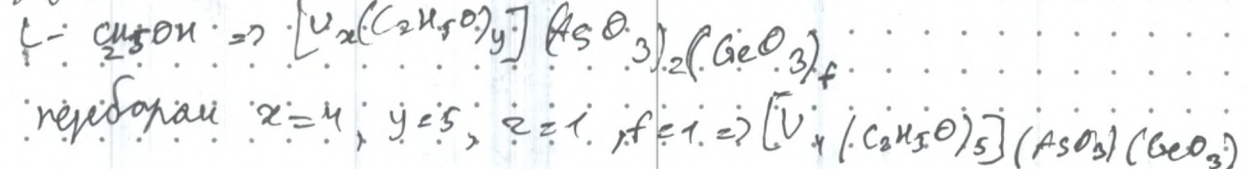 L - C₂H₅OH => [Uₓ(C₂H₅O)y] (AsO₃)z(GeO₃)f
перебором x=4, y=5, z=1, f=1 => [U₄(C₂H₅O)₅](AsO₃)(GeO₃)